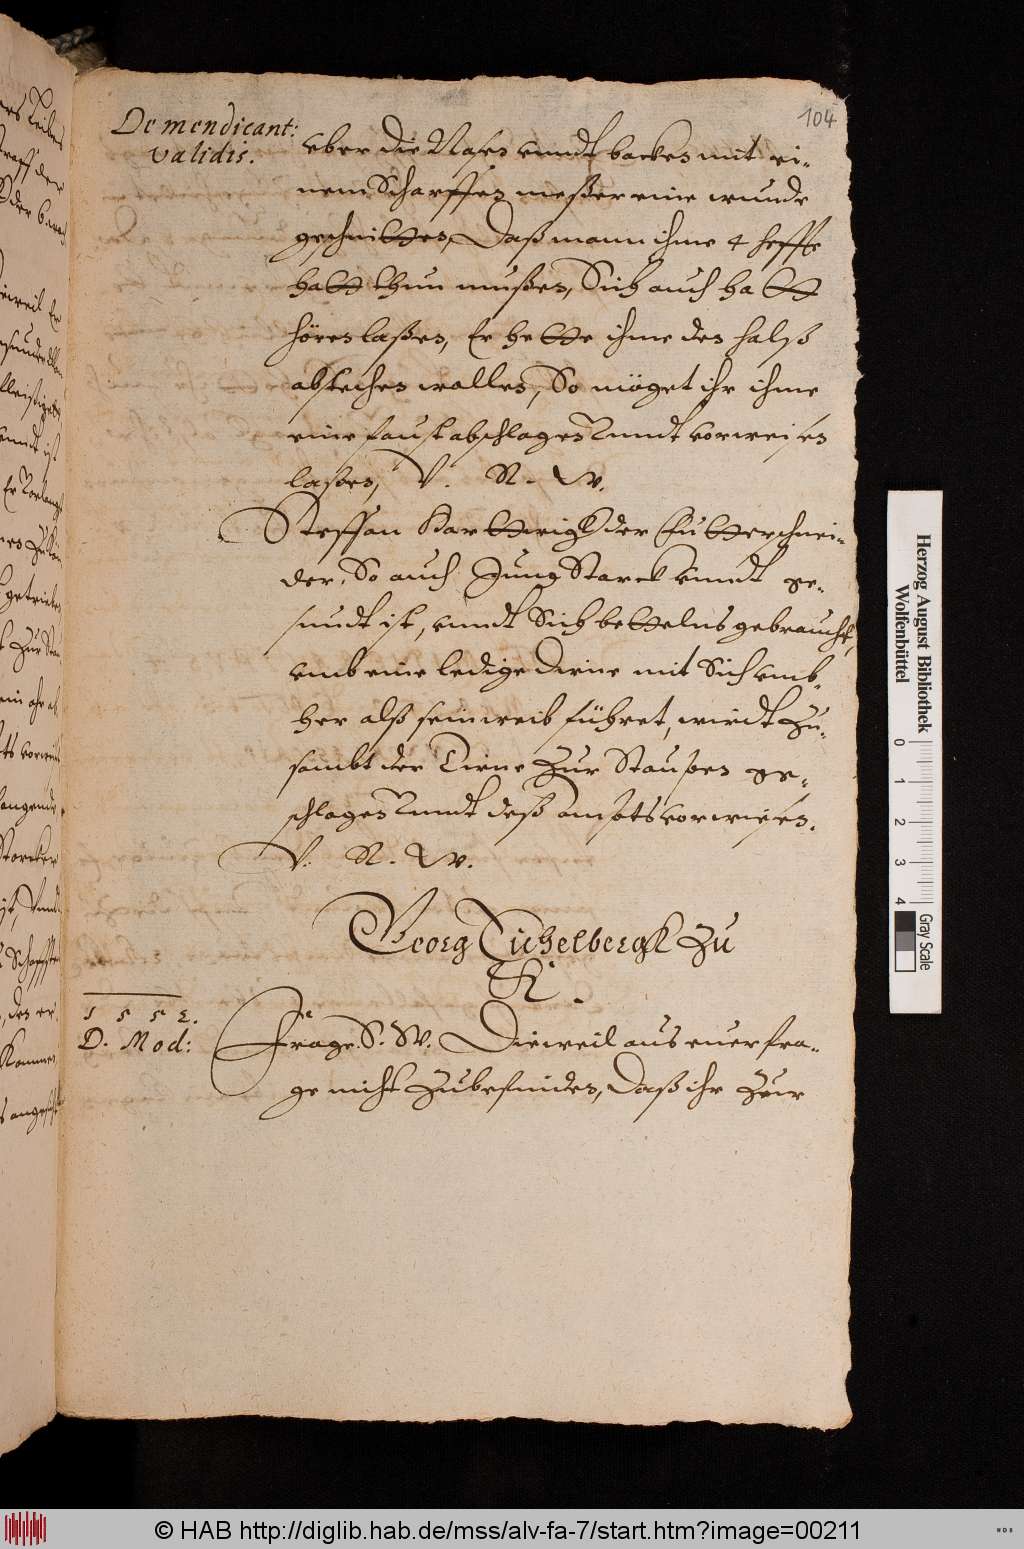 104
De mendicant:
validis.
vber die Nasen vnndt backen mit ei-
nem Scharffen meßer eine wunde
geschnitten, Daß mann ihme 4 heffte
hatt thun mußen, Sich auch hatt
hören laßen, Er hette ihme den halß
abstechen wollen, So möget ihr ihme
eine faust abschlagen vnndt vorweisen
laßen, V. R. W.
Steffan Harttwigk der Futterschnei-
der, So auch Jung Starck vnndt ge-
sundt ist, vnndt Sich bettelns gebraucht,
vnd eine ledige dirne mit Sich vmb-
her alß sein weib führet, wirdt Zu-
sambt der Dirne Zur Staupen ge-
schlagen vnndt deß ampts vorwiesen.
V. R. W.
Georg Eichelbergk Zu
K.
1552.
D. Mod:
Frage. S. W. Dieweil aus euer fra-
ge nicht Zubefinden, Daß ihr Zur
Herzog August Bibliothek
Wolfenbüttel
0 1 2 3 4
Gray Scale
© HAB http://diglib.hab.de/mss/alv-fa-7/start.htm?image=00211